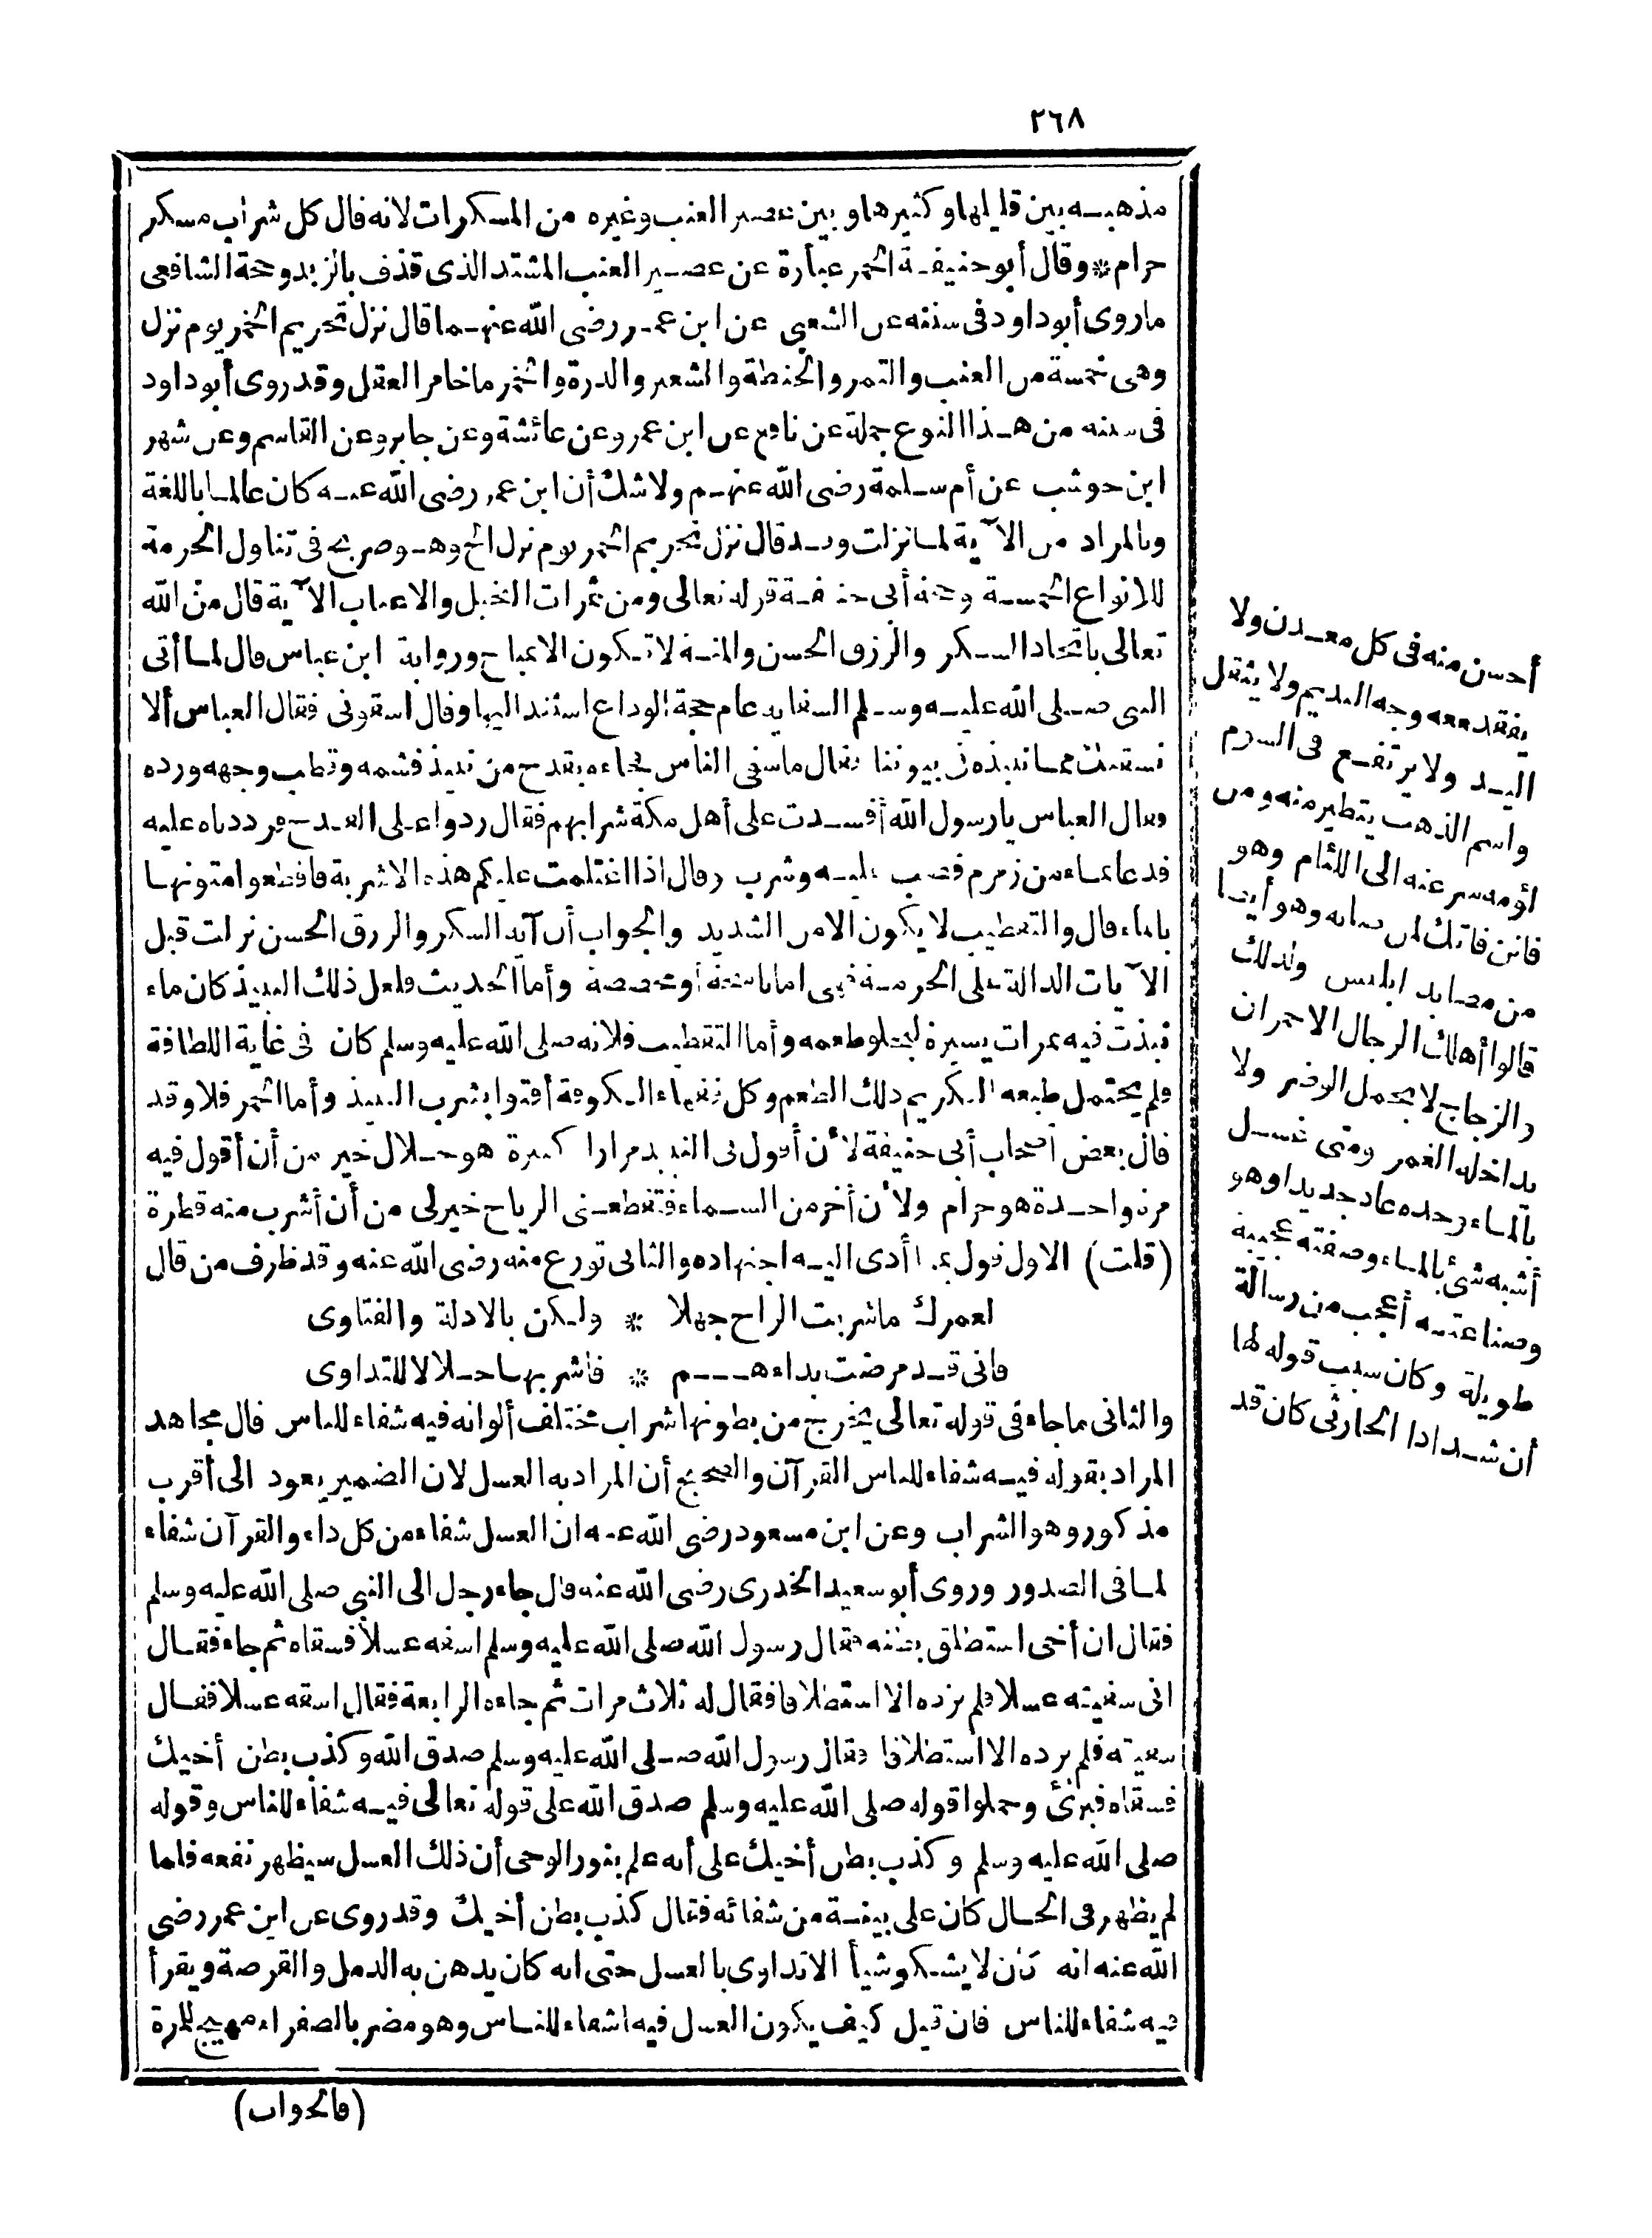 ٢٦٨
مذهبه بين قليلها وكثيرها وبين عصير العنب وغيره من المسكرات لانه قال كل شراب مسكر
حرام * وقال أبو حنيفة الخمر عبارة عن عصير العنب المشتد الذى قذف بالزبد وحجة الشافعى
ماروى أبو داود فى سننه عن الشعبي عن ابن عمر رضى الله عنهما قال نزل تحريم الخمر يوم نزل
وهى خمسة من العنب والتمر والحنطة والشعير والذرة والخمر ماخامر العقل وقد روى أبو داود
فى سننه من هذا النوع جملة عن نافع عن ابن عمر وعن عائشة وعن جابر وعن القاسم وعن شهر
ابن حوشب عن أم سلمة رضى الله عنهم ولا شك أن ابن عمر رضى الله عنه كان عالما باللغة
وبالمراد من الآية لما نزلت وقد قال نزل تحريم الخمر يوم نزل الخ وهو صريح فى تناول الحرمة
للانواع الخمسة وحجة أبى حنيفة قوله تعالى ومن ثمرات النخيل والاعناب الآية قال منّ الله
تعالى باتخاذ السكر والرزق الحسن والمنة لاتكون الا بمباح ورواية ابن عباس قال لما أتى
النبى صلى الله عليه وسلم السقاية عام حجة الوداع استند اليها وقال اسقونى فقال العباس ألا
نسقيك مما ننبذه فى بيوتنا فقال ماسقى الناس فجاءه بقدح من نبيذ فشمه وقطب وجهه ورده
وقال العباس يارسول الله أفسدت على أهل مكة شرابهم فقال ردوا على القدح فرددناه عليه
فدعا بماء من زمزم فصب عليه وشرب وقال اذا اغتلمت عليكم هذه الاشربة فاقطعوا متونها
بالماء قال والتقطيب لا يكون الا من الشديد والجواب أن آية السكر والرزق الحسن نزلت قبل
الآيات الدالة على الحرمة فهى اما ناسخة أو مخصصة وأما الحديث فلعل ذلك النبيذ كان ماء
نبذت فيه تمرات يسيرة ليحلو طعمه وأما التقطيب فلانه صلى الله عليه وسلم كان فى غاية اللطافة
فلم يحتمل طبعه الكريم ذلك الطعم وكل فقهاء الكوفة أفتوا بشرب النبيذ وأما الخمر فلا وقد
قال بعض أصحاب أبى حنيفة لأن أقول فى النبيذ مرارا كثيرة هو حلال خير من أن أقول فيه
مرة واحدة هو حرام ولأن أخر من السماء فتقطعنى الرياح خير لى من أن أشرب منه قطرة
(قلت) الاول قول بما أدى اليه اجتهاده والثانى تورع منه رضى الله عنه وقد ظرف من قال
لعمرك ماشربت الراح جهلا * ولكن بالادلة والفتاوى
فانى قد مرضت بداء هم * فاشربها حلالا للتداوى
والثانى ماجاء فى قوله تعالى يخرج من بطونها شراب مختلف ألوانه فيه شفاء للناس قال مجاهد
المراد بقوله فيه شفاء للناس القرآن والصحيح أن المراد به العسل لان الضمير يعود الى أقرب
مذكور وهو الشراب وعن ابن مسعود رضى الله عنه ان العسل شفاء من كل داء والقرآن شفاء
لما فى الصدور وروى أبو سعيد الخدرى رضى الله عنه قال جاء رجل الى النبي صلى الله عليه وسلم
فقال ان أخى استطلق بطنه فقال رسول الله صلى الله عليه وسلم اسقه عسلا فسقاه ثم جاء فقال
انى سقيته عسلا فلم يزده الا استطلاقا فقال له ثلاث مرات ثم جاءه الرابعة فقال اسقه عسلا فقال
سقيته فلم يزده الا استطلاقا فقال رسول الله صلى الله عليه وسلم صدق الله وكذب بطن أخيك
فسقاه فبرئ وحملوا قوله صلى الله عليه وسلم صدق الله على قوله تعالى فيه شفاء للناس وقوله
صلى الله عليه وسلم وكذب بطن أخيك على أنه علم بنور الوحى أن ذلك العسل سيظهر نفعه فلما
لم يظهر فى الحال كان على بينة من شفائه فقال كذب بطن أخيك وقد روى عن ابن عمر رضى
الله عنه انه كان لا يشكو شيأ الا تداوى بالعسل حتى انه كان يدهن به الدمل والقرصة ويقرأ
فيه شفاء للناس فان قيل كيف يكون العسل فيه شفاء للناس وهو مضر بالصفراء مهيج للمرة
(فالجواب)
أحسن منه فى كل معدن ولا
يفقد معه وجه النديم ولا يثقل
اليد ولا يرتفع فى السوم
واسم الذهب يتطير منه ومن
لؤمه سرعته الى اللئام وهو
فاتن فاتك لمن صانه وهو أيضا
من مصايد ابليس ولذلك
قالوا أهلك الرجال الاحمران
والزجاج لا يحمل الوضر ولا
يداخله الغمر ومتى غسل
بالماء وحده عاد جديدا وهو
أشبه شئ بالماء وصفته عجيبة
وصناعته أعجب من رسالة
طويلة وكان سبب قوله لها
أن شدادا الحارثى كان قد